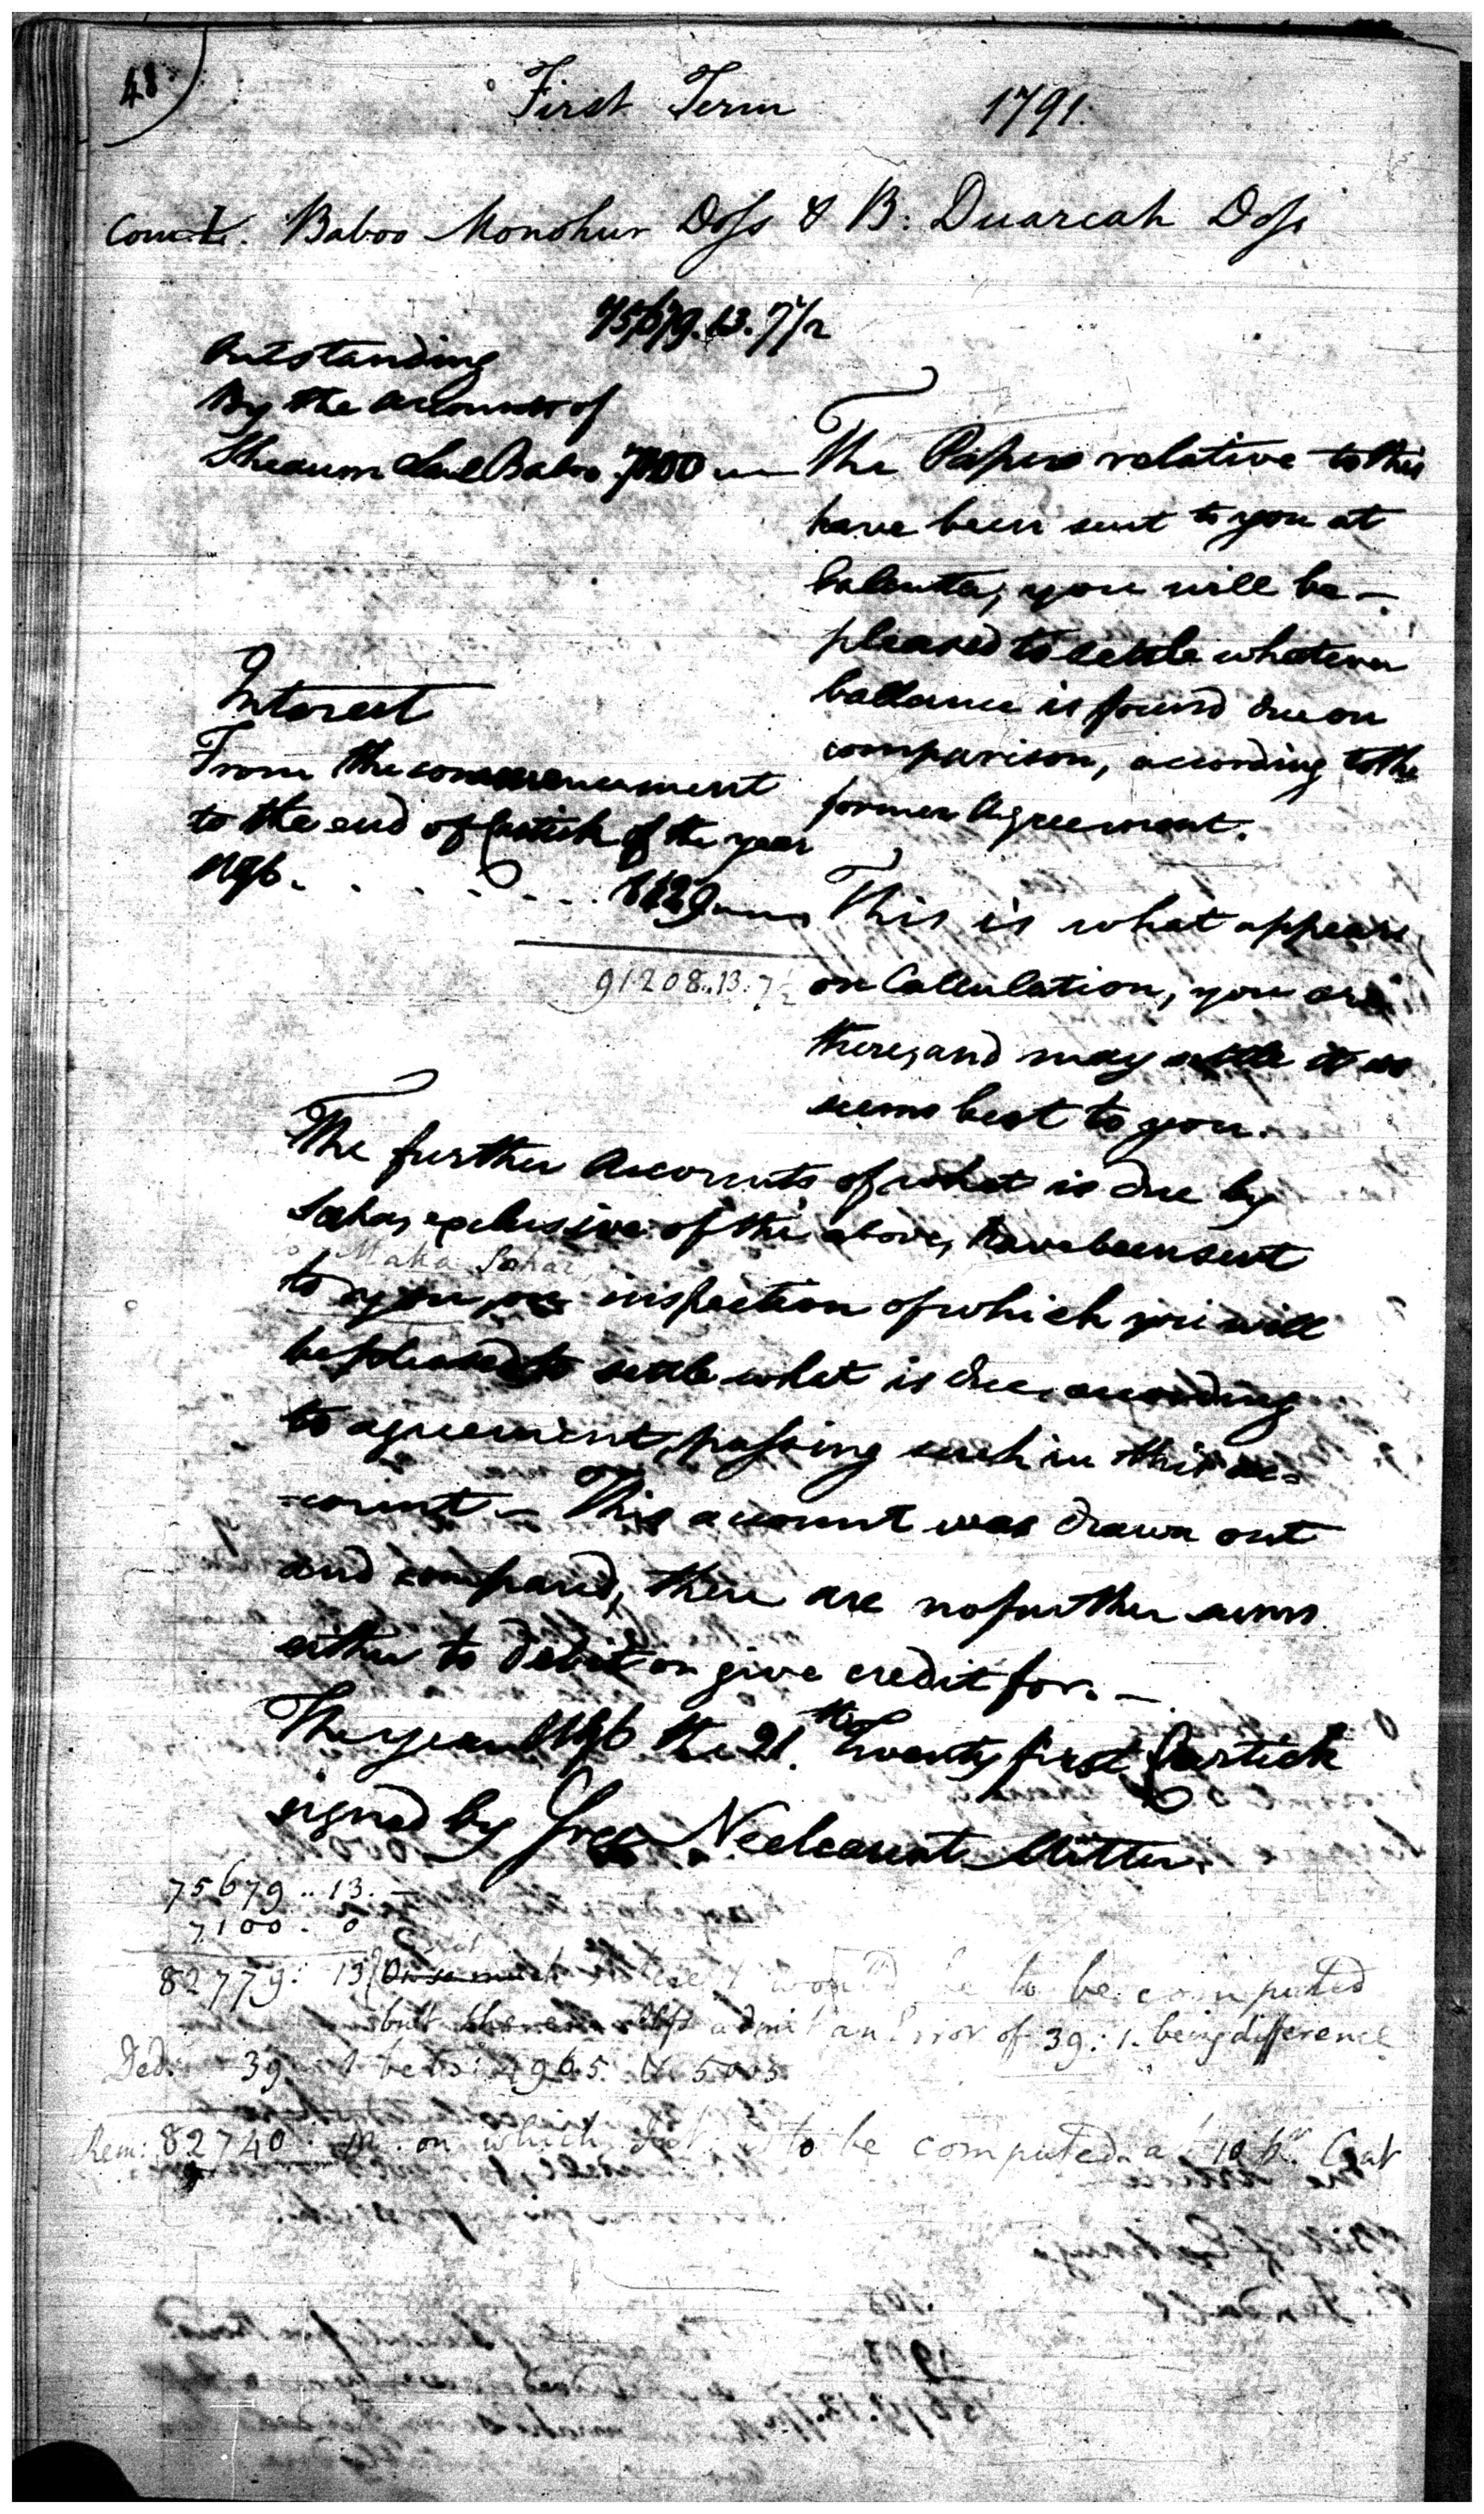 48
First Term 1791.
Baboo Monohur Doss & B: Duarcah Doss
75679.13.7 1/2
Outstanding
By the accounts of
Sheaum Laul Baboo 7100
The Papers relative to this
have been sent to you at
Calcutta, you will be
pleased to settle whatever
ballance is found due on
comparison, according to the
former Agreement.
Interest
From the commencement
to the end of Cartick of the year
1196. 8429
91208..13.7 1/2
This is what appears
on Calculation, you are
there, and may settle it as
seems best to you.
The further Accounts of what is due by
Sahas, exclusive of the above, have been sent
Maha Sahai
to you, on inspection of which you will
be pleased to settle what is due, according
to agreement, passing such in this ac=
-count — This account was drawn out
and compared, there are no further sums
either to debit or give credit for. —
The year 1196 the 21. Twenty first Cartick
signed by Sree Neelcaunt Mitter.
75679..13.
7100. 0
82779: 13 to be computed
but admit an Error of 39:1. being difference
Ded. 39 1 bets: 4965. & 5003
Rem: 82740. on which Int to be computed at 10 pr. Cent